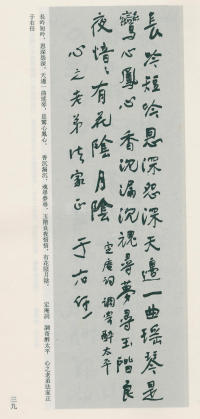 長吟短吟恩深怨深天邊一曲瑤琴是
鸞心鳳心香沉漏沉魂尋夢尋玉階良
夜愔〻有花陰月陰
定庵詞調寄醉太平
心之老弟法家正
于右任
長吟短吟，恩深怨深。天邊一曲瑤琴，是鸞心鳳心。　香沉漏沉，魂尋夢尋。玉階良夜愔愔，有花陰月陰。　定庵詞　調寄醉太平　心之老弟法家正
于右任
三九